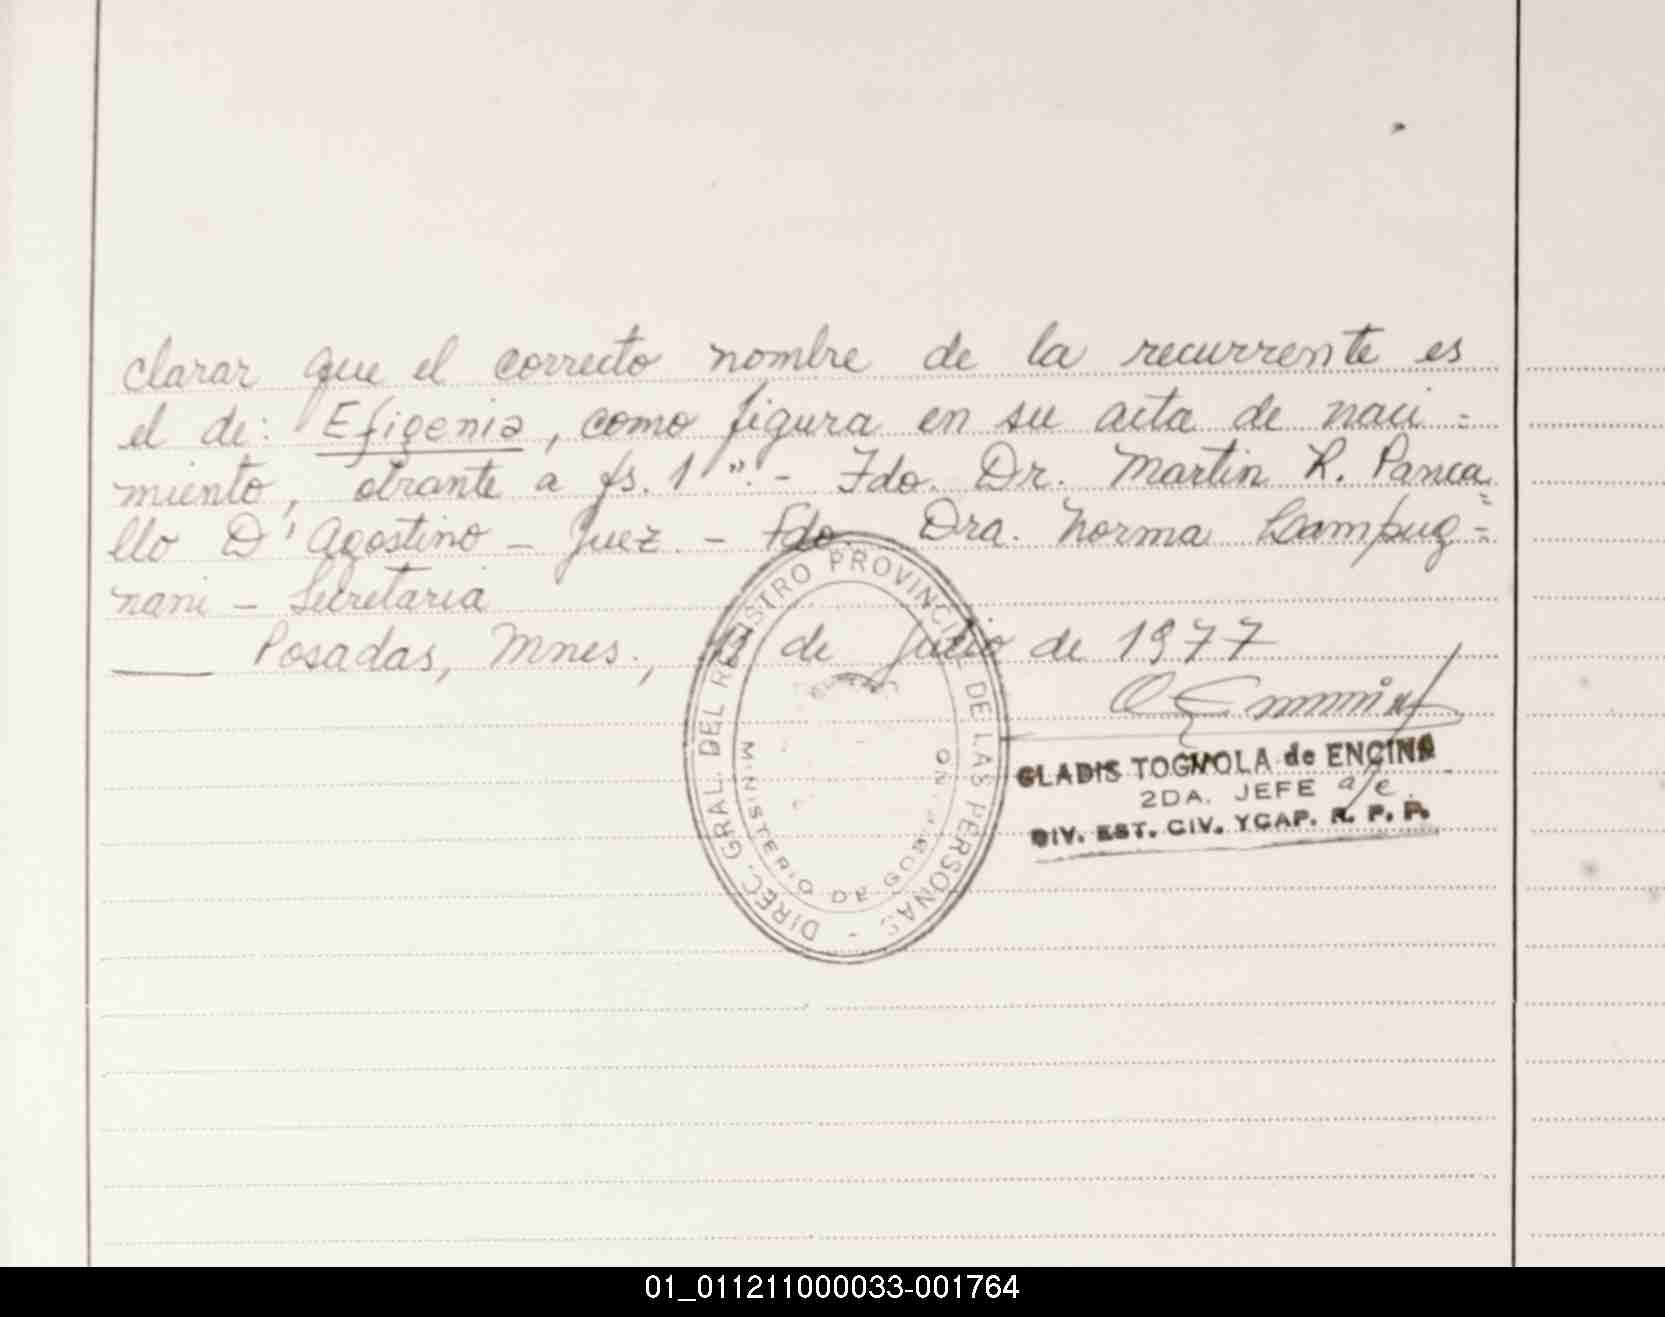 clarar que el correcto nombre de la recurrente es
el de: Efigenia, como figura en su acta de naci=
miento, obrante a fs. 1".- Fdo. Dr. Martin R. Panca=
llo D'Agostino - Juez. - Fdo. Dra. Norma Lampug=
nani - Secretaria
Posadas, Mnes., 12 de julio de 1977
GLADIS TOGNOLA de ENCINA
2DA. JEFE a/c.
DIV. EST. CIV. YCAP. R. P. P.
DIREC. GRAL. DEL REGISTRO PROVINCIAL DE LAS PERSONAS -
MINISTERIO DE GOBIERNO
01_011211000033-001764